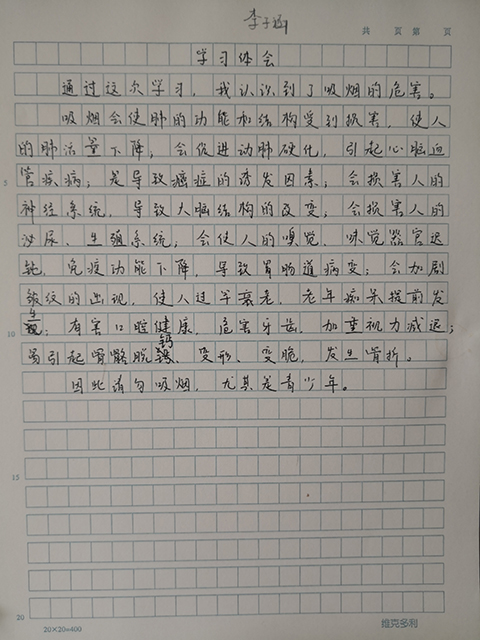 李子涵
共 页 第 页
学习体会
通过这次学习，我认识到了吸烟的危害。
吸烟会使肺的功能和结构受到损害，使人
的肺活量下降；会促进动脉硬化，引起心脑血
5
管疾病；是导致癌症的诱发因素；会损害人的
神经系统，导致大脑结构的改变；会损害人的
泌尿、生殖系统；会使人的嗅觉、味觉器官迟
钝，免疫功能下降，导致胃肠道病变；会加剧
皱纹的出现，使人过早衰老，老年痴呆提前发
生
10
；有害口腔健康，危害牙齿，加重视力减退；
易引起骨骼脱钙、变形、变脆，发生骨折。
因此请勿吸烟，尤其是青少年。
15
20
20×20=400
维克多利